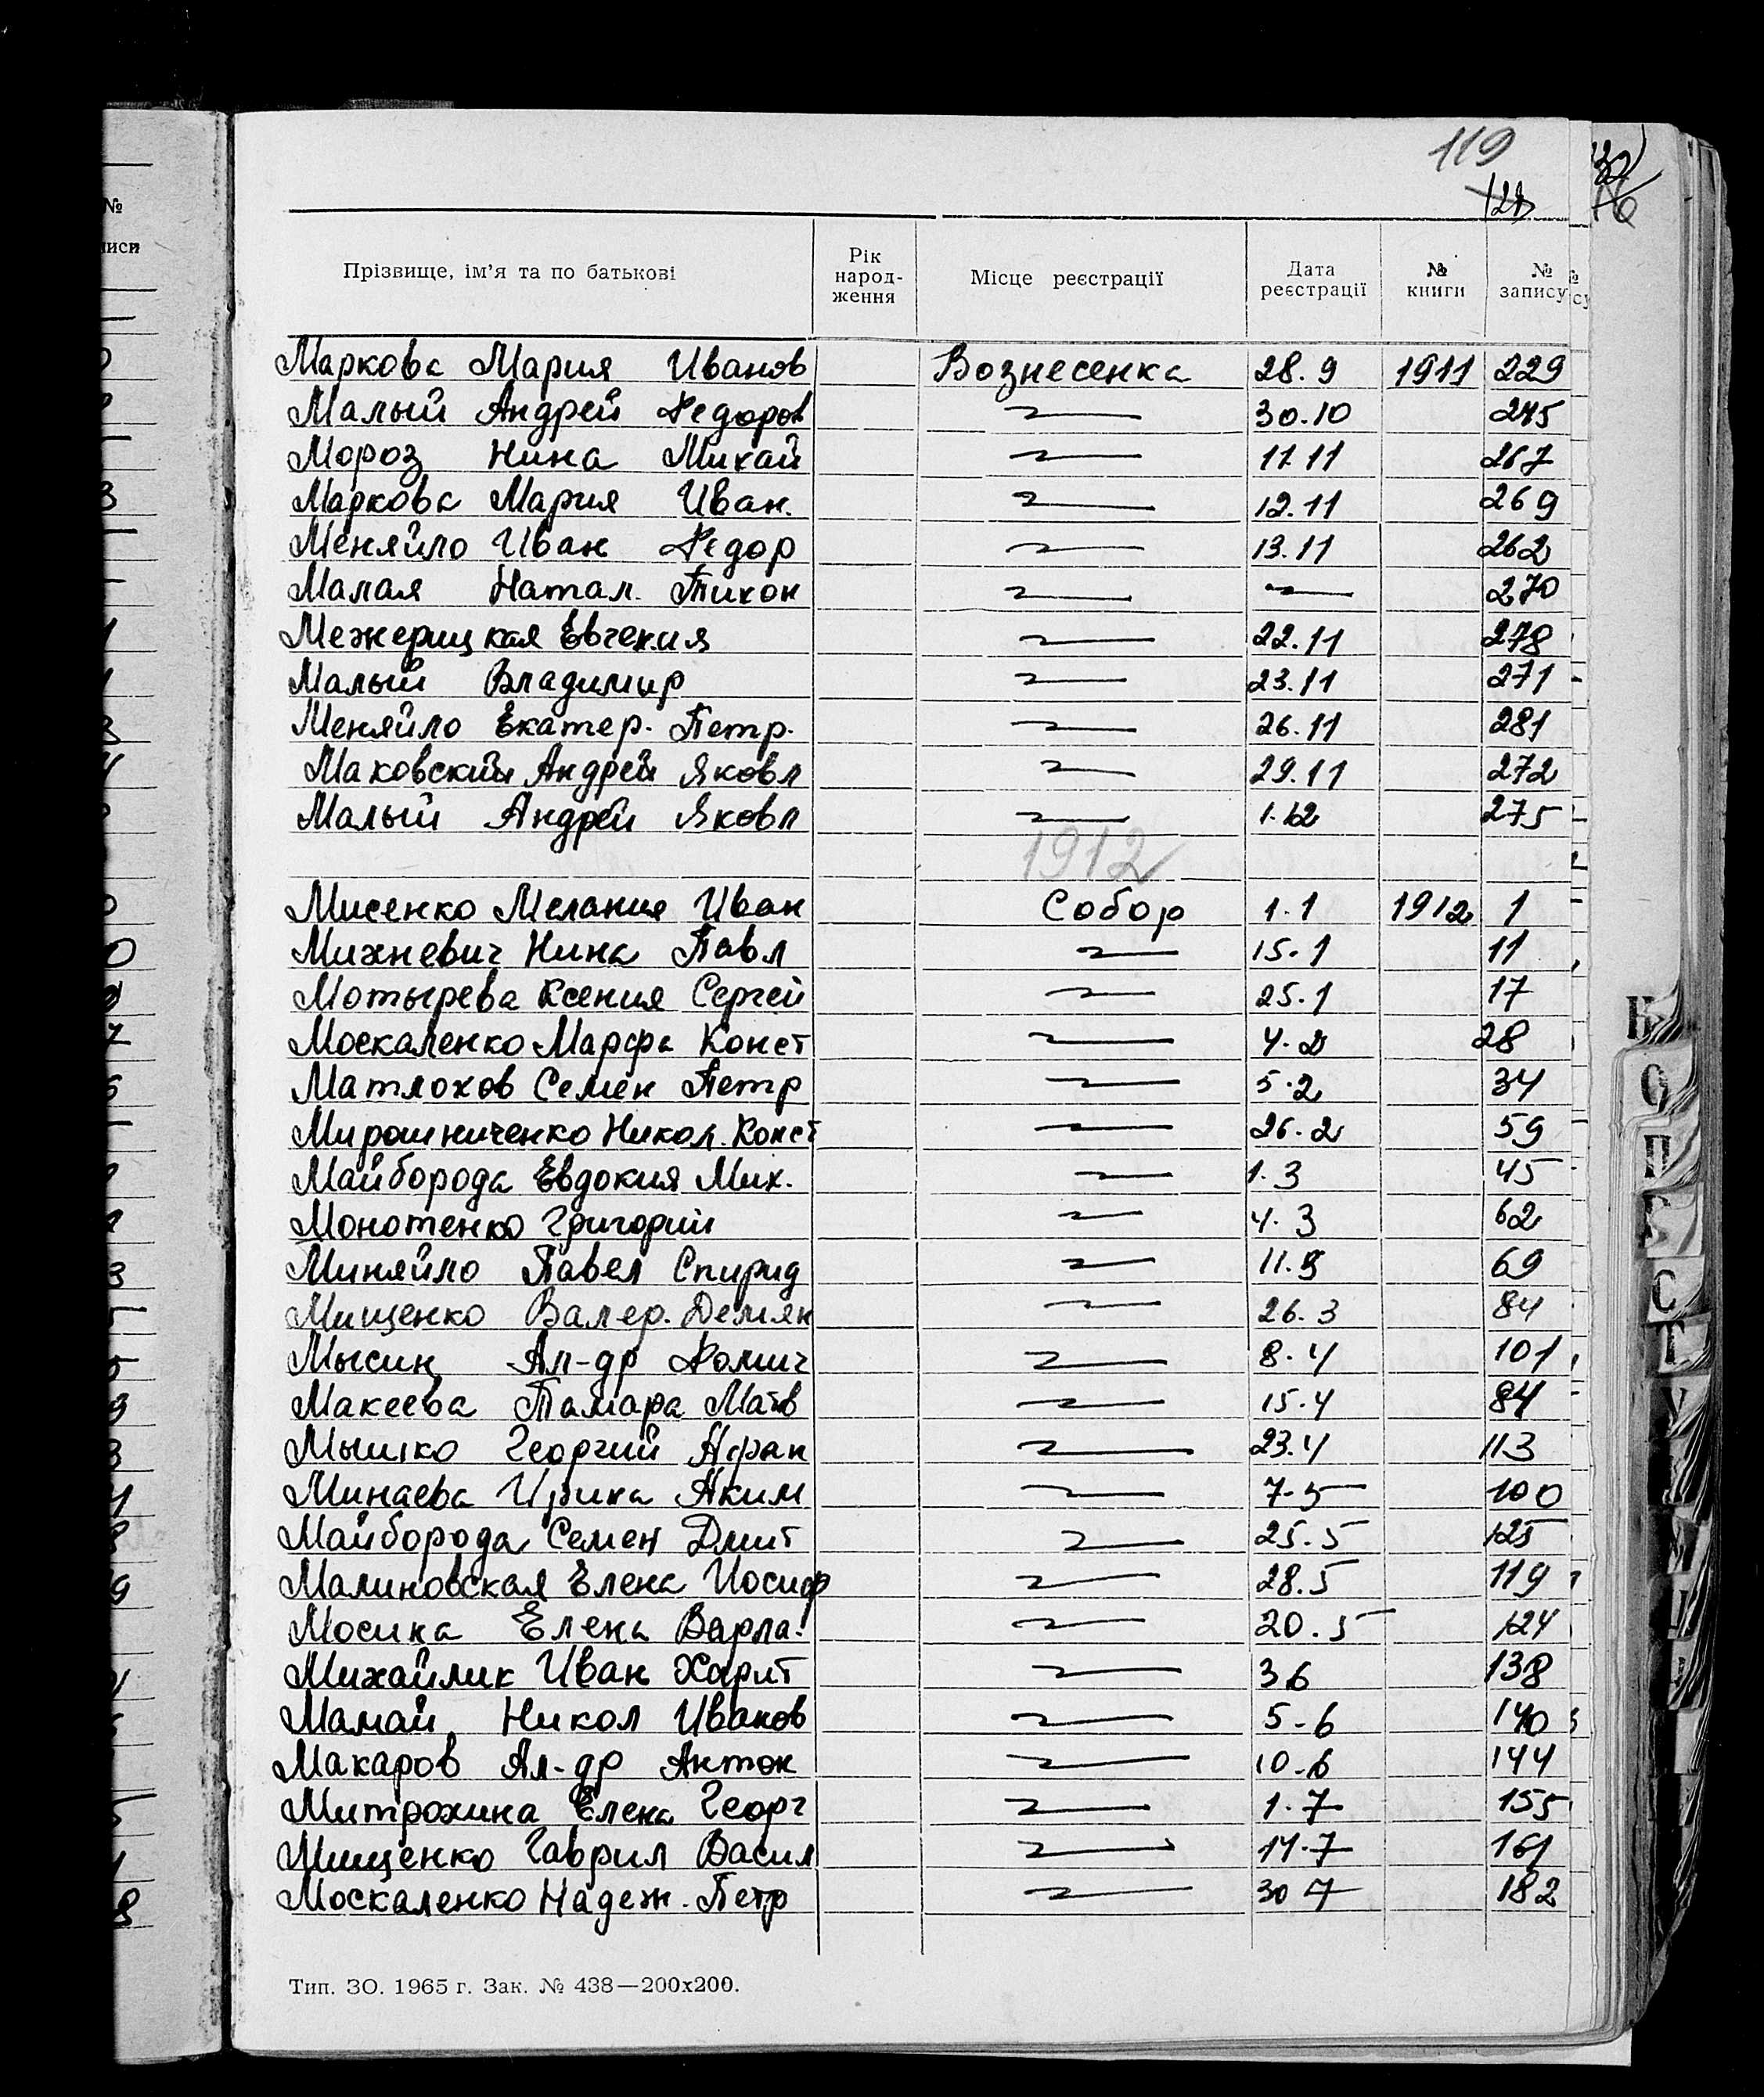 119
Прізвище, ім'я та по батькові Рік народження Місце реєстрації Дата реєстрації № книги № запису
Маркова Мария Иванов Вознесенка 28.9 1911 229
Малый Андрей Федоров 30.10 245
Мороз Нина Михай 11.11 267
Маркова Мария Иван. 12.11 269
Меняйло Иван Федор 13.11 262
Малая Натал. Тихон 270
Межерицкая Евгения 22.11 278
Малый Владимир 23.11 271
Меняйло Екатер. Петр. 26.11 281
Маковский Андрей Яковл 29.11 272
Малый Андрей Яковл 1.12 275
1912
Мисенко Мелания Иван Собор 1.1 1912 1
Михневич Нина Павл 15.1 11
Мотырева Ксения Сергей 25.1 17
Москаленко Марфа Конст 4.2 28
Матлохов Семен Петр 5.2 34
Мирошниченко Никол. Конст 26.2 59
Майборода Евдокия Мих. 1.3 45
Монотенко Григорий 4.3 62
Миняйло Павел Спирид 11.3 69
Мищенко Валер. Демян 26.3 84
Мысин Ал-др Фомич 8.4 101
Макеева Тамара Матв 15.4 84
Мышко Георгий Афан 23.4 113
Минаева Ирина Аким 7-5 100
Майборода Семен Дмит 25.5 125
Малиновская Елена Иосиф 28.5 119
Мосина Елена Варла. 20.5 124
Михайлик Иван Харит 3 6 138
Мамай Никол Иванов 5-6 140
Макаров Ал-др Антон 10-6 144
Митрохина Елена Георг 1.7 155
Мищенко Гаврил Васил 14.7 161
Москаленко Надеж. Петр 30 7 182
Тип. ЗО. 1965 г. Зак. № 438—200х200.
Н
О
П
Р
С
Т
У